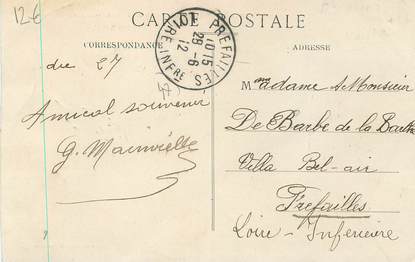 12€
CARTE POSTALE
CORRESPONDANCE
ADRESSE
PREFAILLES
10 15
28 -6
12
LOIRE INFRE
du 27
Amical souvenir
G.
Madame & Monsieur
De Barbe de la
Villa Bel-air
Prefailles
Loire-Inférieure